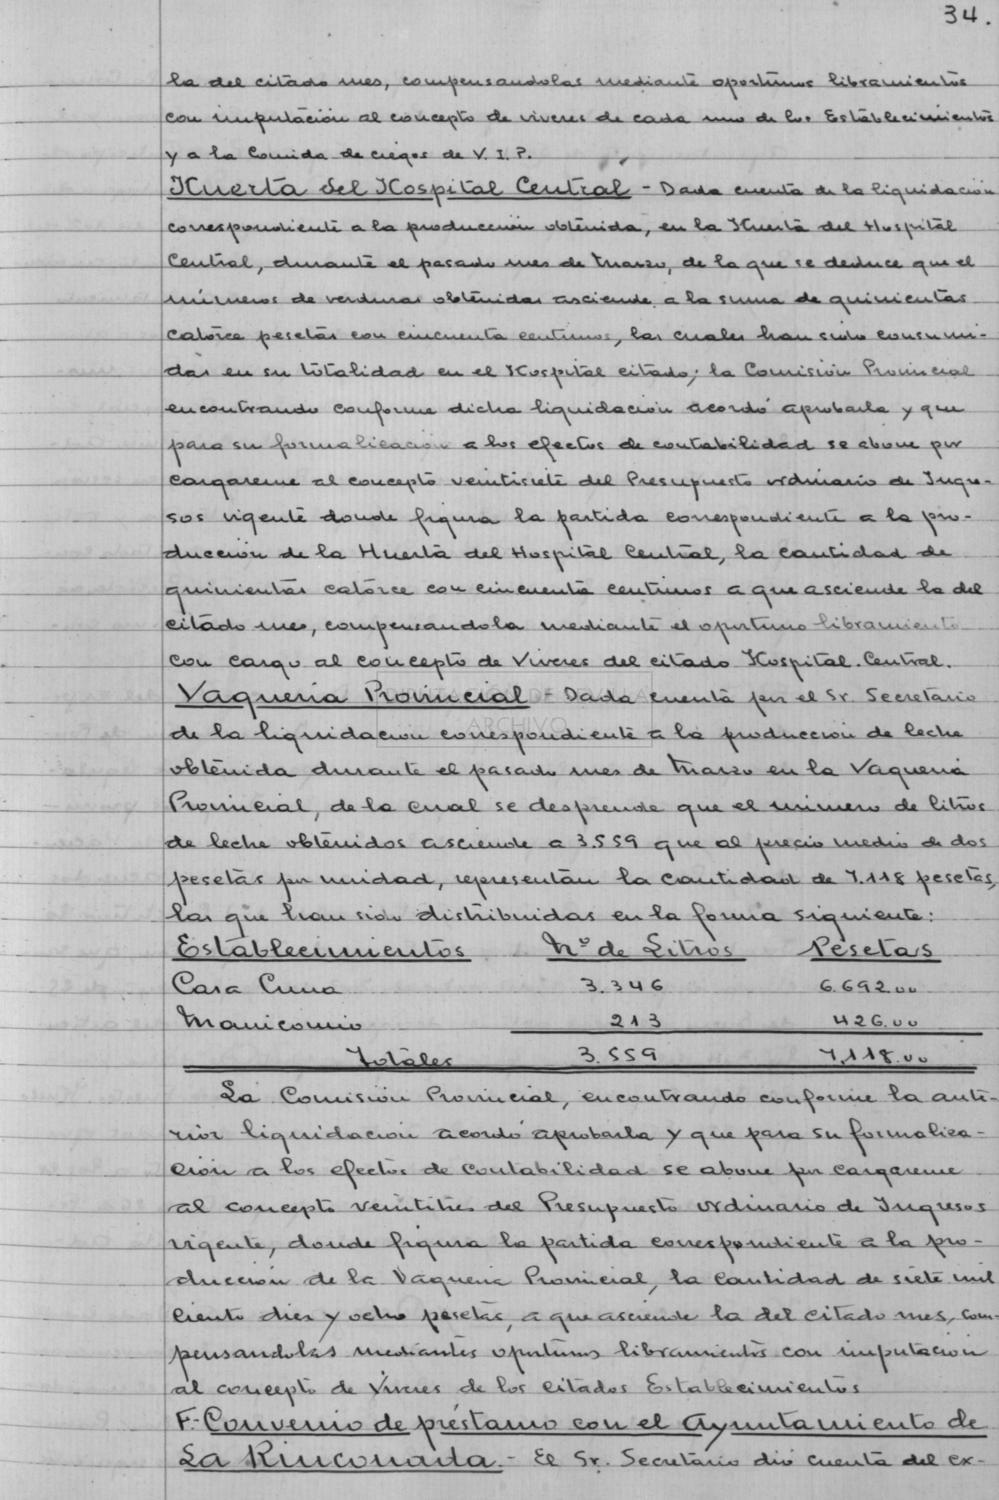 34.
la del citado mes, compensandolas mediante oportunos libramientos
con imputación al concepto de viveres de cada uno de los Establecimientos
y a la Comida de ciegos de V. I. P.
Huerta del Hospital Central - Dada cuenta de la liquidación
correspondiente a la producción obtenida, en la Huerta del Hospital
Central, durante el pasado mes de Marzo, de la que se deduce que el
números de verduras obtenidas asciende a la suma de quinientas
catorce pesetas con cincuenta centimos, las cuales han sido consumi-
das en su totalidad en el Hospital citado; la Comisión Provincial
encontrando conforme dicha liquidación acordó aprobarla y que
para su formalización a los efectos de contabilidad se abone por
cargareme al concepto veintisiete del Presupuesto ordinario de Ingre-
sos vigente donde figura la partida correspondiente a la pro-
ducción de la Huerta del Hospital Central, la cantidad de
quinientas catorce con cincuenta centimos a que asciende la del
citado mes, compensandola mediante el oportuno libramiento
con cargo al concepto de Viveres del citado Hospital Central.
Vaqueria Provincial - Dada cuenta por el Sr. Secretario
ARCHIVO
de la liquidación correspondiente a la producción de leche
obtenida durante el pasado mes de Marzo en la Vaqueria
Provincial, de la cual se desprende que el número de litros
de leche obtenidos asciende a 3.559 que al precio medio de dos
pesetas por unidad, representan la cantidad de 7.118 pesetas,
las que han sido distribuidas en la forma siguiente:
Establecimientos Nº de Litros Pesetas
Casa Cuna 3.346 6.692.00
Manicomio 213 426.00
Totales 3.559 7,118.00
La Comisión Provincial, encontrando conforme la ante-
rior liquidación acordó aprobarla y que para su formaliza-
ción a los efectos de contabilidad se abone por cargareme
al concepto veintitres del Presupuesto ordinario de Ingresos
vigente, donde figura la partida correspondiente a la pro-
ducción de la Vaqueria Provincial, la cantidad de siete mil
ciento diez y ocho pesetas, a que asciende la del citado mes, com-
pensandolas mediantes oportunos libramientos con imputación
al concepto de Viveres de los citados Establecimientos
F.- Convenio de préstamo con el Ayuntamiento de
La Rinconada. - El Sr. Secretario dió cuenta del ex-